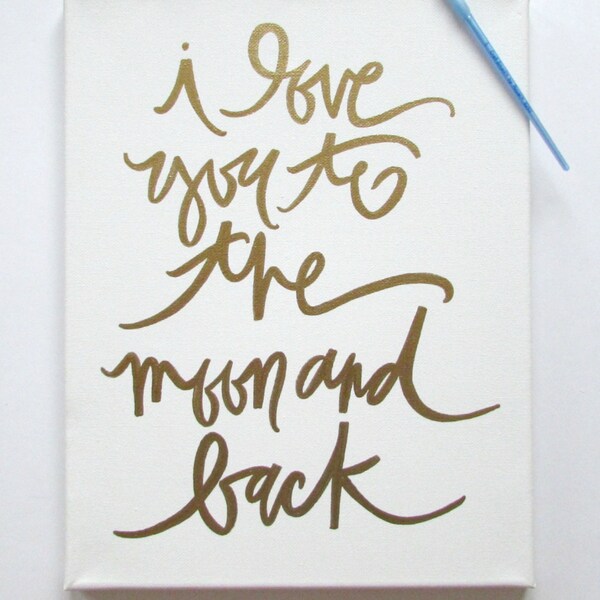 i love
you to
the
moon and
back